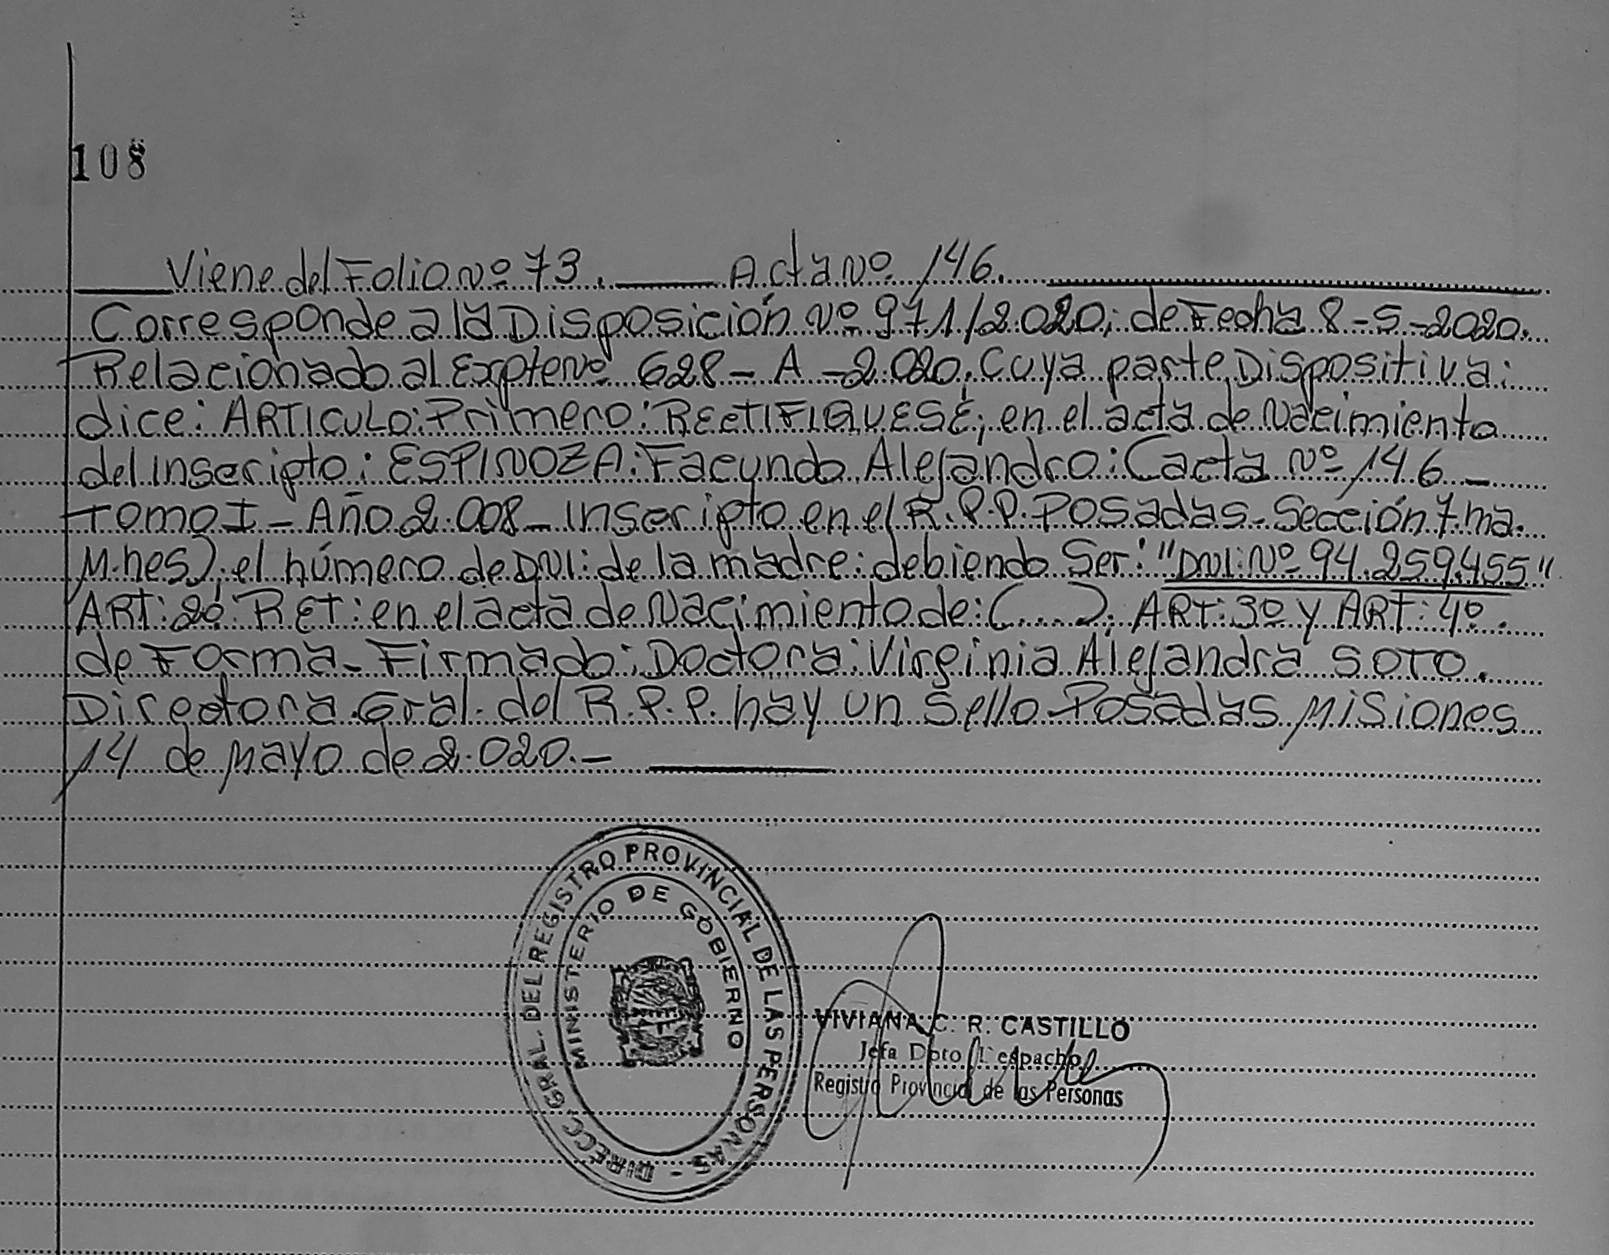 108
Viene del Folio Nº 73. Acta Nº 146.
Corresponde a la Disposición Nº 971/2.020, de Fecha 8-5-2020.
Relacionado al Expte Nº 628-A-2.020, Cuya parte Dispositiva:
dice: ARTICULO: Primero: RECTIFIQUESE, en el acta de Nacimiento
del inscripto: ESPINOZA: Facundo Alejandro: (acta Nº 146-
Tomo I - Año 2.008- inscripto en el R.P.P. Posadas- Sección 7ma.
Mnes), el número de DNI: de la madre: debiendo Ser: "DNI: Nº 94.259.455"
ART: 2º: RET: en el acta de Nacimiento de: (....). ART: 3º y ART: 4º.
de Forma- Firmado: Doctora: Virginia Alejandra SOTO.
Directora Gral. del R.P.P. hay un Sello- Posadas, Misiones
14 de Mayo de 2.020.-
DIRECC. GRAL. DEL REGISTRO PROVINCIAL DE LAS PERSONAS -
MINISTERIO DE GOBIERNO
VIVIANA C. R. CASTILLO
Jefa Dpto Despacho
Registro Provincial de las Personas